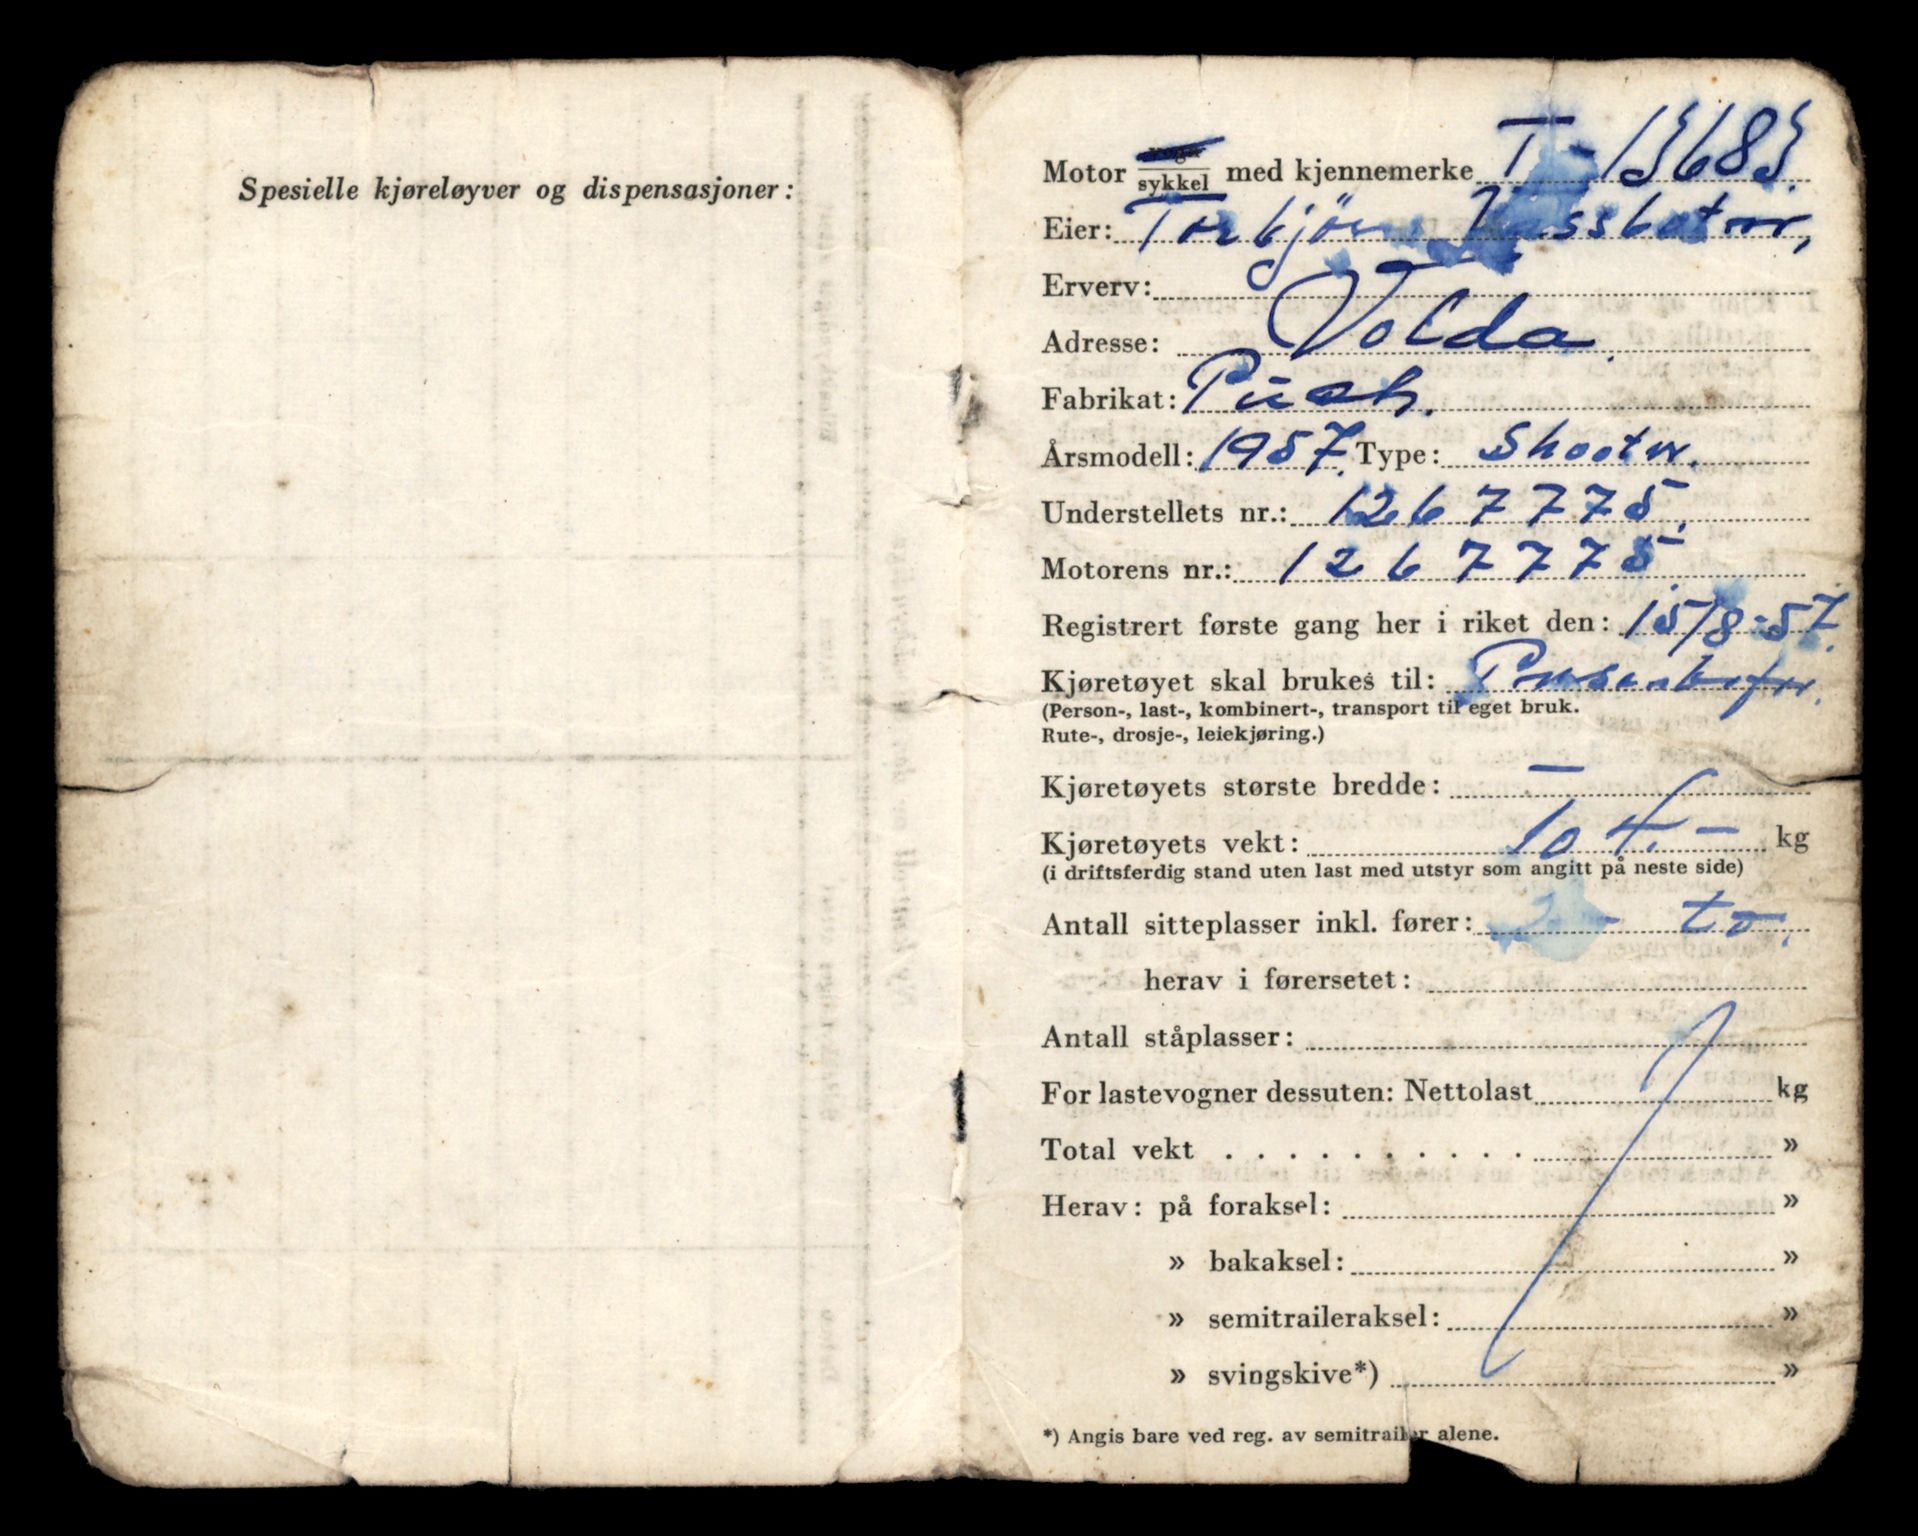 Spesielle kjøreløyver og dispensasjoner:
Motor sykkel med kjennemerke T-15685.
Eier: Torbjörn Vassbotn,
Erverv:
Adresse: Volda.
Fabrikat: Puch.
Årsmodell: 1957. Type: Shooter.
Understellets nr.: 1267775.
Motorens nr.: 1267775.
Registrert første gang her i riket den: 15/8-57.
Kjøretøyet skal brukes til:
(Person-, last-, kombinert-, transport til eget bruk.
Rute-, drosje-, leiekjøring.)
Kjøretøyets største bredde: —
Kjøretøyets vekt: kg
(i driftsferdig stand uten last med utstyr som angitt på neste side)
Antall sitteplasser inkl. fører: 2 - to.
herav i førersetet:
Antall ståplasser:
For lastevogner dessuten: Nettolast kg
Total vekt . . . . . . . . . . »
Herav: på foraksel: »
» bakaksel: »
» semitraileraksel: »
» svingskive*) »
*) Angis bare ved reg. av semitrailer alene.